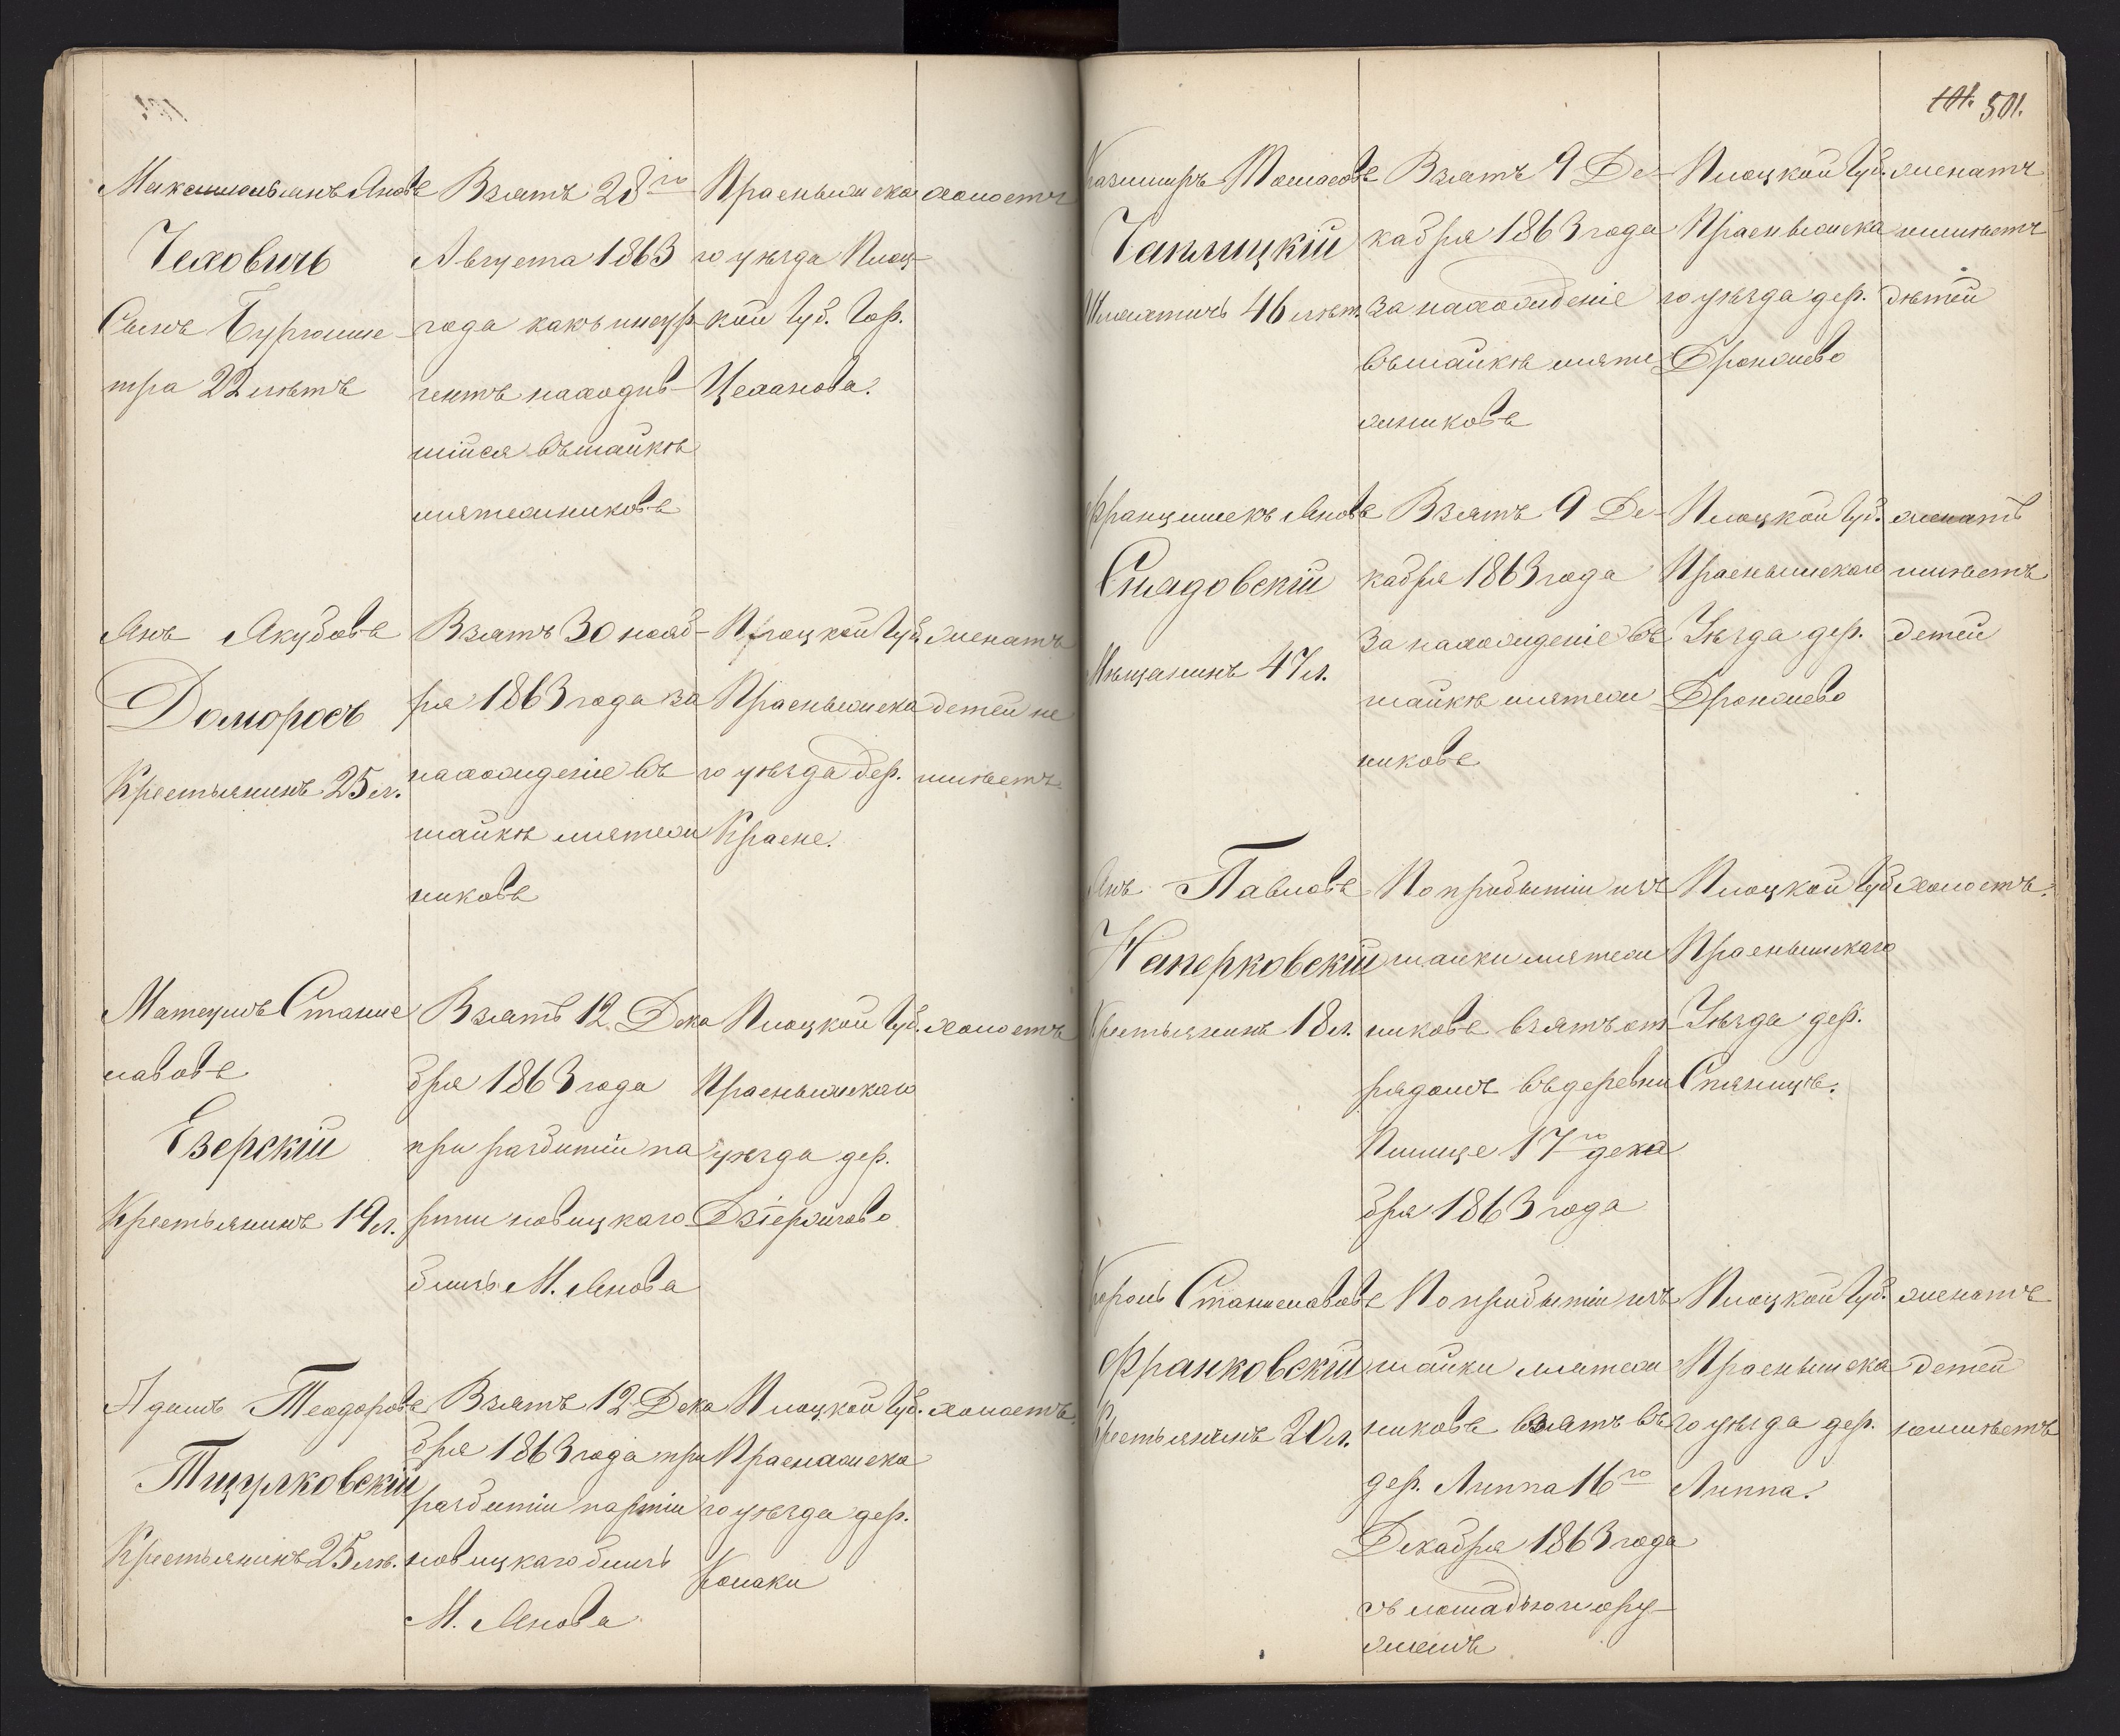 Максимильянъ Яновъ
Чеховичъ
Сынъ Бургоми-
тра 22 лѣтъ
Взятъ 28го
Августа 1863
года какъ инсур-
гентъ находив-
шійся въ шайкѣ
мятежниковъ
Праснышска
го уѣзда Плоц-
кой Губ. Гор.
Цеханова.
холостъ
Янъ Якубовъ
Доморосъ
Крестьянинъ 25 л.
Взятъ 30 нояб-
ря 1863 года за
нахожденіе въ
шайкѣ мятеж
никовъ
Плоцкой Губ.
Праснышска
го уѣзда дер.
Красне.
женатъ
детей не
имѣетъ
Матеушъ Станис
лавовъ
Езерскій
Крестьянинъ 19 л.
Взятъ 12 Дека
бря 1863 года
при разбитіи па
ртіи новицкаго
близъ М. Янова
Плоцкой Губ.
Праснышскаго
уѣзда дер.
Дзержгово
холостъ
Адамъ Теодоровъ
Тицулковскій
Крестьянинъ 25 лѣ.
Взятъ 12 Дека
бря 1863 года при
разбитіи партіи
новицкаго близъ
М. Янова
Плоцкой Губ.
Праснышска
го уѣзда дер.
холостъ.
101. 501.
Казимиръ Томасовъ
Чаплицкій
Шляхтичъ 46 лѣт.
Взятъ 9 Де-
кабря 1863 года
за нахожденіе
въ шайкѣ мяте
жниковъ
Плоцкой Губ.
Праснышска
го уѣзда дер.
Гронжево
женатъ
имѣетъ
дѣтей
Францишекъ Яновъ
Сладовскій
Мѣщанинъ 47 л.
Взятъ 9 Де-
кабря 1863 года
за нахожденіе въ
шайкѣ мятеж
никовъ
Плоцкой Губ.
Праснышскаго
Уѣзда дер.
Гронжево
женатъ
имѣетъ
детей
Янъ Павловъ
Наперковскій
Крестьянинъ 18 л.
По прибытіи изъ
шайки мятеж
никовъ взятъ от
рядомъ въ деревни
17го дека
бря 1863 года
Плоцкой Губ.
Праснышскаго
Уѣзда дер.
холостъ.
Кароль Станиславовъ
Франковскій
Крестьянинъ 20 л.
По прибытіи изъ
шайки мятеж
никовъ взятъ въ
дер. Липпа 16го
Декабря 1863 года
съ лошадью и ору-
жіемъ
Плоцкой Губ.
Праснышска
го уѣзда дер.
Липпа.
женатъ
детей
неимѣетъ